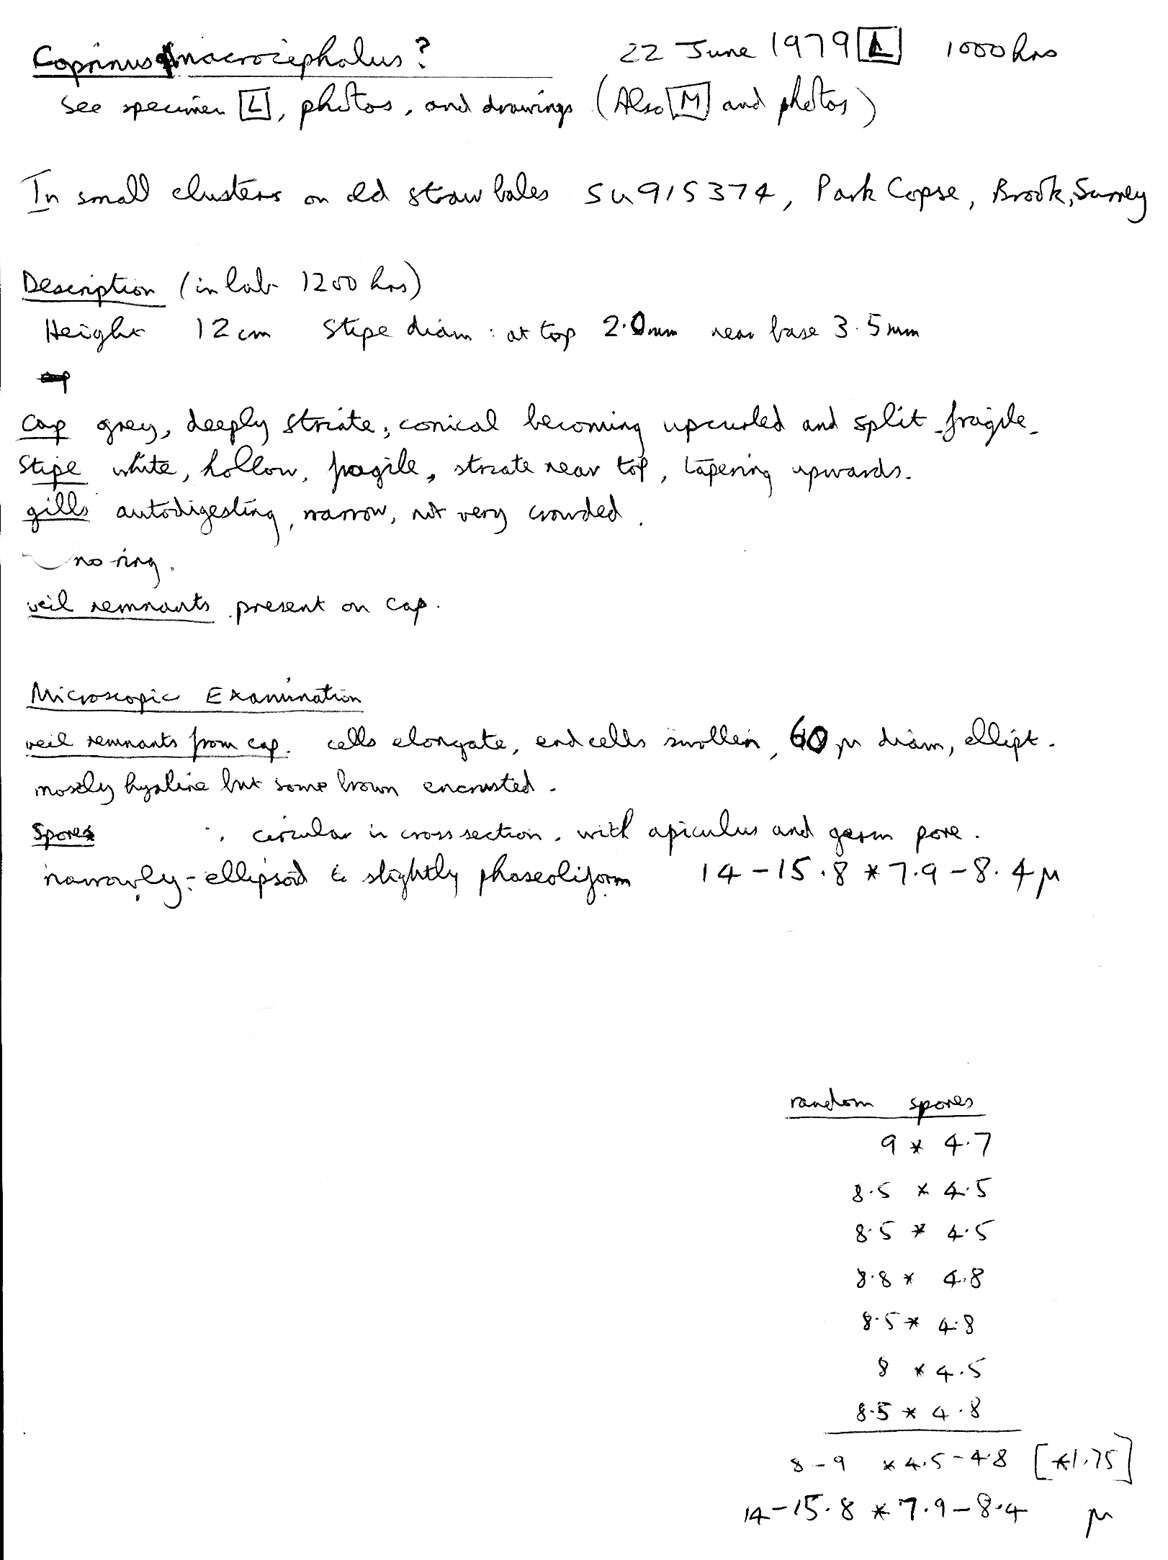 Coprinus macrocephalus? 22 June 1979 [L] 1000 hrs
See specimen [L], photos, and drawings (Also [M] and photos)
In small clusters on old straw bales SU915374, Park Copse, Brook, Surrey
Description (in lab 1200 hrs)
Height 12 cm Stipe diam: at top 2.0mm near base 3.5mm
cap grey, deeply striate, conical becoming upcurled and split - fragile -
Stipe white, hollow, fragile, striate near top, tapering upwards.
gills autodigesting, narrow, not very crowded.
no ring.
veil remnants present on cap.
Microscopic Examination
veil remnants from cap. cells elongate, end cells swollen, 60 µ diam, ellipt.
mostly hyaline but some brown encrusted.
Spores circular in cross section, with apiculus and germ pore.
narrowly-ellipsoid to slightly phaseoliform 14-15.8 * 7.9-8.4 µ
random spores
9 * 4.7
8.5 * 4.5
8.5 * 4.5
8.8 * 4.8
8.5 * 4.8
8 * 4.5
8.5 * 4.8
8-9 * 4.5-4.8 [*1.75]
14-15.8 * 7.9-8.4 µ